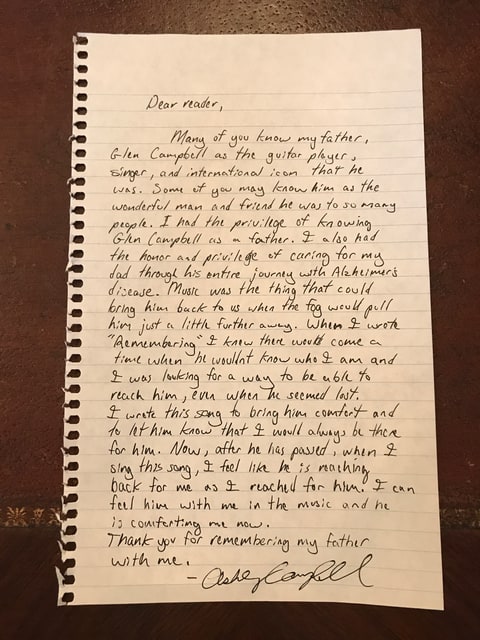 Dear reader,
Many of you know my father,
Glen Campbell as the guitar player,
singer, and international icon that he
was. Some of you may know him as the
wonderful man and friend he was to so many
people. I had the privilege of knowing
Glen Campbell as a father. I also had
the honor and privilege of caring for my
dad through his entire journey with Alzheimer's
disease. Music was the thing that could
bring him back to us when the fog would pull
him just a little further away. When I wrote
"Remembering" I knew there would come a
time when he wouldn't know who I am and
I was looking for a way to be able to
reach him, even when he seemed lost.
I wrote this song to bring him comfort and
to let him know that I would always be there
for him. Now, after he has passed, when I
sing this song, I feel like he is reaching
back for me as I reached for him. I can
feel him with me in the music and he
is comforting me now.
Thank you for remembering my father
with me.
- Ashley Campbell